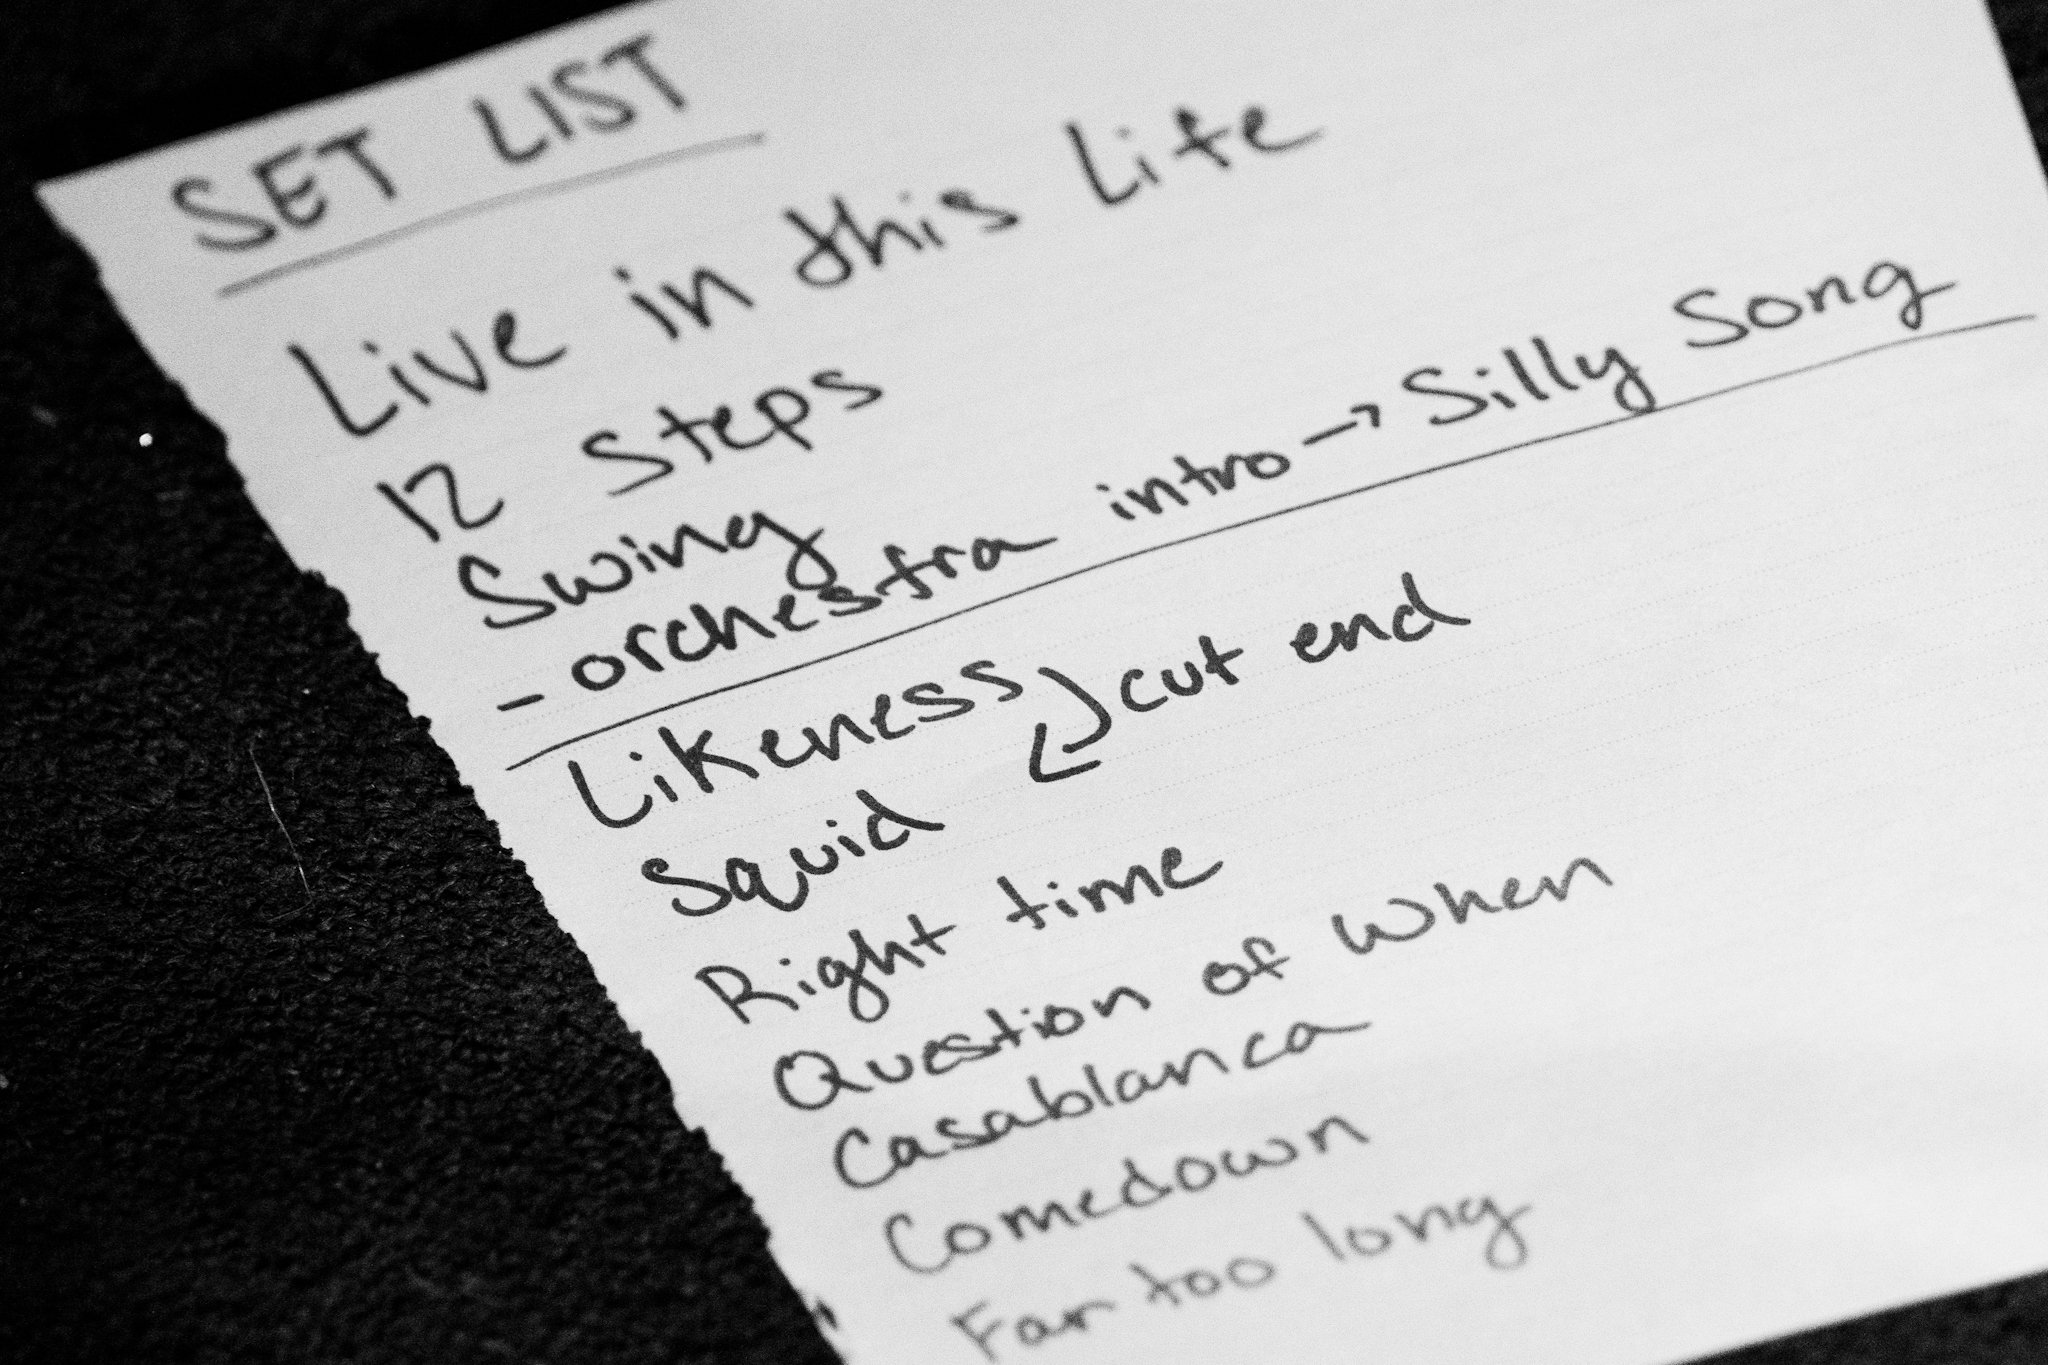 SET LIST
Live in this Life
12 Steps
Swing
- orchestra intro → Silly Song
Likeness cut end
Squid
Right time
Question of When
Casablanca
Comedown
Far too long